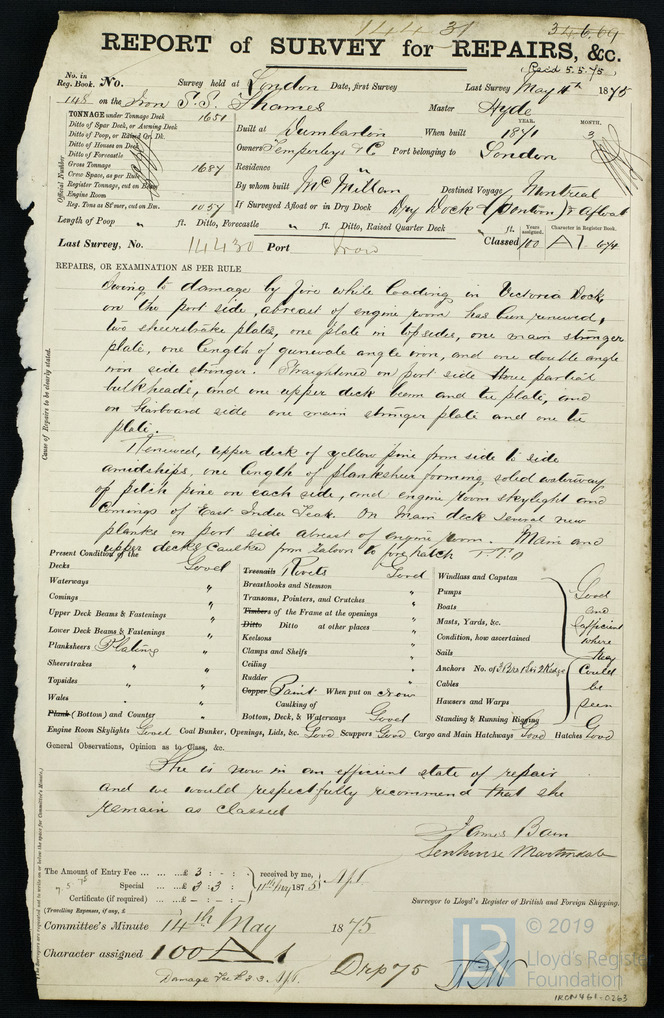 14431
34669
REPORT of SURVEY for REPAIRS, &c.
(Recd 5.5.75)
No. in Reg. Book. No. Survey held at London Date, first Survey Last Survey May 11th 1875
148 on the Iron S.S. Thames Master Hyde
TONNAGE under Tonnage Deck 1651
Ditto of Spar Deck, or Awning Deck
Ditto of Poop, or Raised Qr. Dk.
Ditto of Houses on Deck
Ditto of Forecastle
Gross Tonnage 1687
Crew Space, as per Rule
Register Tonnage, cut on Beam
Engine Room
Reg. Tons as Str., cut on Bm. 1057
Official Number
Built at Dumbarton When built YEAR. 1871 MONTH. 3
Owners Temperleys & C Port belonging to London
Residence "
By whom built McMillan Destined Voyage Montreal
If Surveyed Afloat or in Dry Dock Dry Dock & Afloat
Length of Poop " ft. Ditto, Forecastle " ft. Ditto, Raised Quarter Deck " ft.
Last Survey, No. 14430 Port Iron Classed Years assigned. 100 Character in Register Book. A1 6/74
REPAIRS, OR EXAMINATION AS PER RULE
Cause of Repairs to be clearly stated.
Owing to damage by fire while loading in Victoria Dock
on the port side, abreast of engine room has been renewed,
two sheerstrake plates, one plate in topsides, one main stringer
plate, one length of gunwale angle iron, and one double angle
iron side stringer. Straightened on port side three partial
bulkheads, and one upper deck beam and tie plate, and
on Starboard side one main stringer plate and one tie
plate.
Renewed, upper deck of yellow pine from side to side
amidships, one length of planksheer forming solid waterway
of pitch pine on each side, and engine room skylight and
comings of East India Teak. On Main deck several new
planks on port side abreast of engine room. Main and
upper decks caulked from Saloon to fore hatch P.T.O
Present Condition of the
Decks Good
Waterways "
Comings "
Upper Deck Beams & Fastenings "
Lower Deck Beams & Fastenings "
Planksheers Plating "
Sheerstrakes "
Topsides "
Wales "
Plank (Bottom) and Counter "
Treenails Rivets Good
Breasthooks and Stemson "
Transoms, Pointers, and Crutches "
Timbers of the Frame at the openings "
Ditto Ditto at other places "
Keelsons "
Clamps and Shelfs "
Ceiling "
Rudder "
Copper Paint When put on now
Caulking of
Bottom, Deck, & Waterways Good
Windlass and Capstan
Pumps
Boats
Masts, Yards, &c.
Condition, how ascertained
Sails
Anchors No. of 3 Brs 1 Str 2 Kedge
Cables
Hawsers and Warps
Standing & Running Rigging
Good
and
Efficient
where
they
Could
be
seen
Engine Room Skylights Good Coal Bunker, Openings, Lids, &c. Good Scuppers Good Cargo and Main Hatchways Good Hatches Good
General Observations, Opinion as to Class, &c.
She is now in an efficient state of repair
and we would respectfully recommend that she
remain as classed
James Bain
Senhouse Martindale
The Amount of Entry Fee ... £ 3 : - : - received by me,
Special ... £ 3 : 3 : 11th May 1875
Certificate (if required) ... £ - : - : -
(Travelling Expenses, if any, £
Surveyor to Lloyd's Register of British and Foreign Shipping.
Committee's Minute 14th May 1875
Character assigned 100 A 1
Damage Fee £3.3.
Drp 75
© 2019
LR
Lloyd's Register
Foundation
IRON461-0263